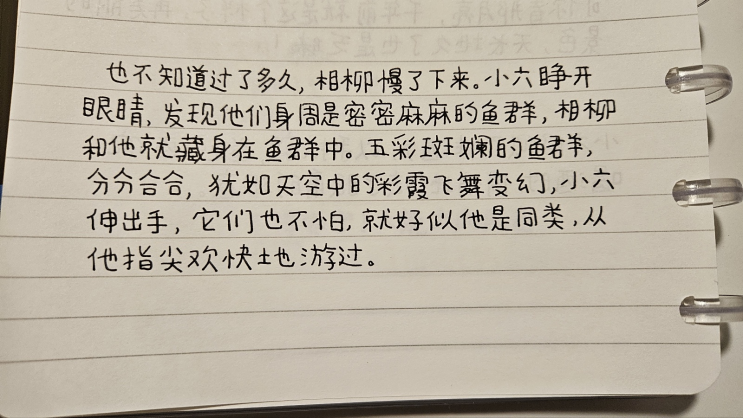 也不知道过了多久,相柳慢了下来。小六睁开
眼睛,发现他们身周是密密麻麻的鱼群,相柳
和他就藏身在鱼群中。五彩斑斓的鱼群,
分分合合,犹如天空中的彩霞飞舞变幻,小六
伸出手,它们也不怕,就好似他是同类,从
他指尖欢快地游过。